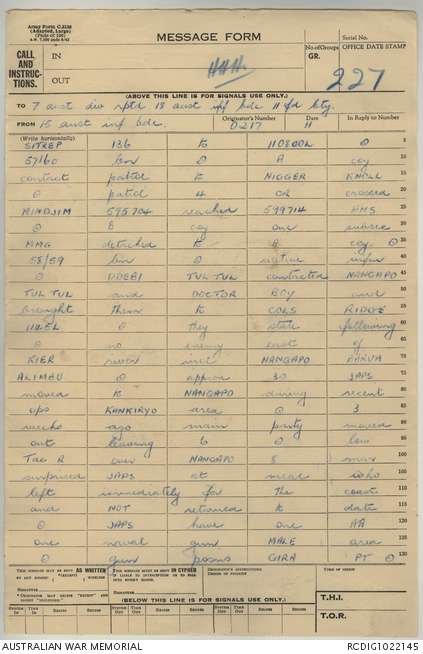 Army Form C.2128
(Adapted, Large)
(Pads of 100)
MESSAGE FORM
Serial No.
CALL
AND
INSTRUC-
TIONS.
IN
OUT
No. of Groups
GR.
OFFICE DATE STAMP
227
(ABOVE THIS LINE IS FOR SIGNALS USE ONLY.)
TO 7 aust div rptd 18 aust inf bde 11 fd bty.
FROM 15 aust inf bde
Originator's Number 0217
Date 11
In Reply to Number
(Write horizontally)
SITREP 136 to 110800L ⊙ 5
57/60 bn ⊙ A coy 10
contact patrol to NIGGER KNOLL 15
⊙ patrol 4 OR crossed 20
MINDJIM 575704 reached 599714 HMS 25
⊙ B coy one subsec
MMG detached to A coy ⊙ 30
58/59 bn ⊙ native
⊙ DOEBI TUL TUL contacted NANGAPO 40
TUL TUL and DOCTOR BOY and 45
brought them to COLS RIDGE 50
⊙ they state following 60
⊙ no enemy east of 65
KIER river incl NANGAPO 70
⊙ approx 30 JAPS 75
moved to NANGAPO during recent 80
ops KANKIRYO area ⊙ 3 85
weeks ago main party moved 90
out leaving 6 ⊙ low 95
Tac R over NANGAPO 8 mar 100
surprised JAPS at meal who 105
left immediately for the coast 110
and NOT returned to date 115
⊙ JAPS have one AA 120
one naval gun MALE area 125
⊙ gun posns GIRA PT ⊙ 130
THIS MESSAGE MAY BE SENT AS WRITTEN
BY ANY MEANS
THIS MESSAGE MUST BE SENT IN CYPHER
ORIGINATOR'S INSTRUCTIONS
DEGREE OF PRIORITY
TIME OF ORIGIN
(BELOW THIS LINE IS FOR SIGNALS USE ONLY.)
T.H.I.
T.O.R.
SYSTEM IN
TIME OUT
READER
SENDER
AUSTRALIAN WAR MEMORIAL
RCDIG1022145